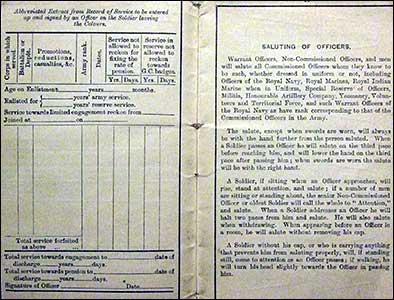 Abbreviated Extract from Record of Service to be entered
up and signed by an Officer on the Soldier leaving
the Colours.
Corps in which
serving.
Battalion or
Depôt.
Promotions,
reductions,
casualties, &c.
Army rank.
Dates.
Service not
allowed to
reckon for
fixing the
rate of
pension.
Service in re-
serve not al-
lowed to
reckon
towards
G. C. badges.
Yrs. Days.
Yrs. Days.
Age on Enlistment years months.
Enlisted for years' army service.
years' reserve service.
Service towards limited engagement reckon from
Joined at on
Total service forfeited
as above
Total service towards engagement to date of
discharge years days.
Total service towards pension to date of
discharge years days.
Signature of Officer Date
SALUTING OF OFFICERS.
Warrant Officers, Non-Commissioned Officers, and men
will salute all Commissioned Officers whom they know to
be such, whether dressed in uniform or not, including
Officers of the Royal Navy, Royal Marines, Royal Indian
Marine when in Uniform, Special Reserve of Officers,
Militia, Honourable Artillery Company, Yeomanry, Volun-
teers and Territorial Force, and such Warrant Officers of
the Royal Navy as have rank corresponding to that of the
Commissioned Officers in the Army.
The salute, except when swords are worn, will always
be with the hand further from the person saluted. When
a Soldier passes an Officer he will salute on the third pace
before reaching him, and will lower the hand on the third
pace after passing him; when swords are worn the salute
will be with the right hand.
A Soldier, if sitting when an Officer approaches, will
rise, stand at attention, and salute; if a number of men
are sitting or standing about, the senior Non-Commissioned
Officer or oldest Soldier will call the whole to "Attention,"
and salute. When a Soldier addresses an Officer he will
halt two paces from him and salute. He will also salute
when withdrawing. When appearing before an Officer in
a room, he will salute without removing his cap.
A Soldier without his cap, or who is carrying anything
that prevents him from saluting properly, will, if standing
still, come to attention as an Officer passes; if walking, he
will turn his head slightly towards the Officer in passing
him.